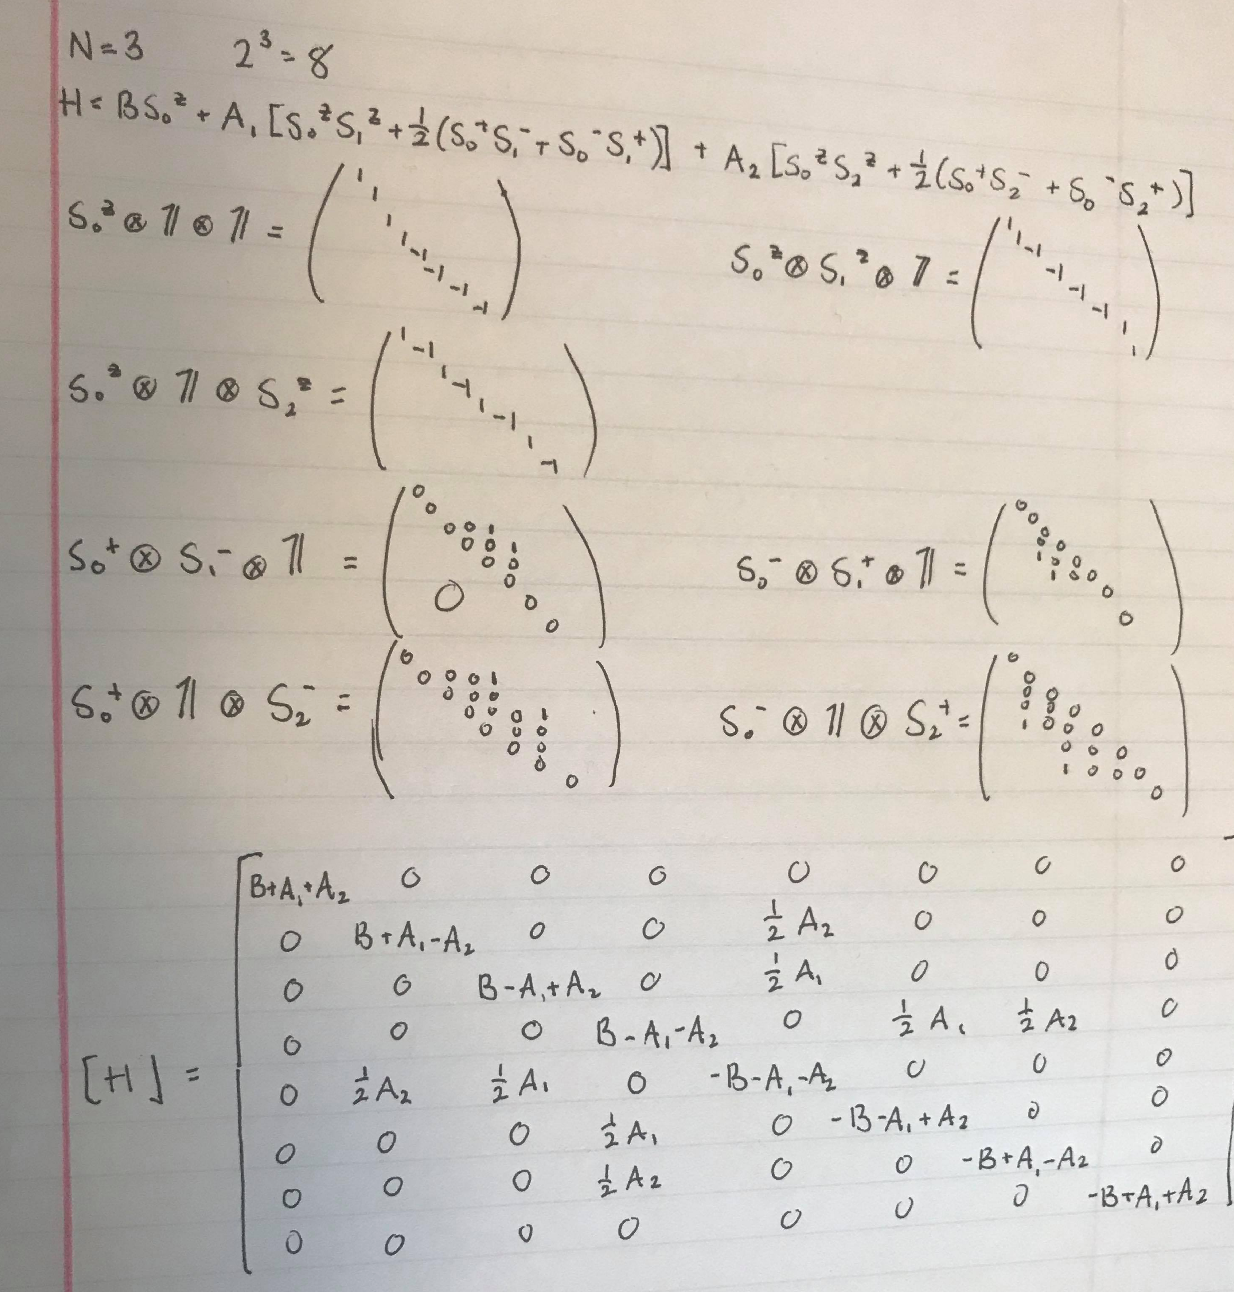 N=3 2³=8
H = BS₀ᶻ + A₁[S₀ᶻS₁ᶻ + ½(S₀⁺S₁⁻ + S₀⁻S₁⁺)] + A₂[S₀ᶻS₂ᶻ + ½(S₀⁺S₂⁻ + S₀⁻S₂⁺)]
S₀ᶻ ⊗ 𝟙 ⊗ 𝟙 = ( 1 1 1 1 -1 -1 -1 -1 )
S₀ᶻ ⊗ S₁ᶻ ⊗ 𝟙 = ( 1 1 -1 -1 -1 -1 1 1 )
S₀ᶻ ⊗ 𝟙 ⊗ S₂ᶻ = ( 1 -1 1 -1 1 -1 1 -1 )
S₀⁺ ⊗ S₁⁻ ⊗ 𝟙 = ( 0
0
0 0 1
0 0 1
0 0
0
0 0
0 )
S₀⁻ ⊗ S₁⁺ ⊗ 𝟙 = ( 0
0
0
0 0
1 0 0
1 0 0
0
0 )
S₀⁺ ⊗ 𝟙 ⊗ S₂⁻ = ( 0
0 0 0 1
0 0 0
0 0 0 1
0 0 0
0 0
0
0 )
S₀⁻ ⊗ 𝟙 ⊗ S₂⁺ = ( 0
0
0 0
0 0 0
1 0 0 0
0 0 0
1 0 0 0
0 )
[H] = [ B+A₁+A₂ 0 0 0 0 0 0 0
0 B+A₁-A₂ 0 0 ½A₂ 0 0 0
0 0 B-A₁+A₂ 0 ½A₁ 0 0 0
0 0 0 B-A₁-A₂ 0 ½A₁ ½A₂ 0
0 ½A₂ ½A₁ 0 -B-A₁-A₂ 0 0 0
0 0 0 ½A₁ 0 -B-A₁+A₂ 0 0
0 0 0 ½A₂ 0 0 -B+A₁-A₂ 0
0 0 0 0 0 0 0 -B+A₁+A₂ ]